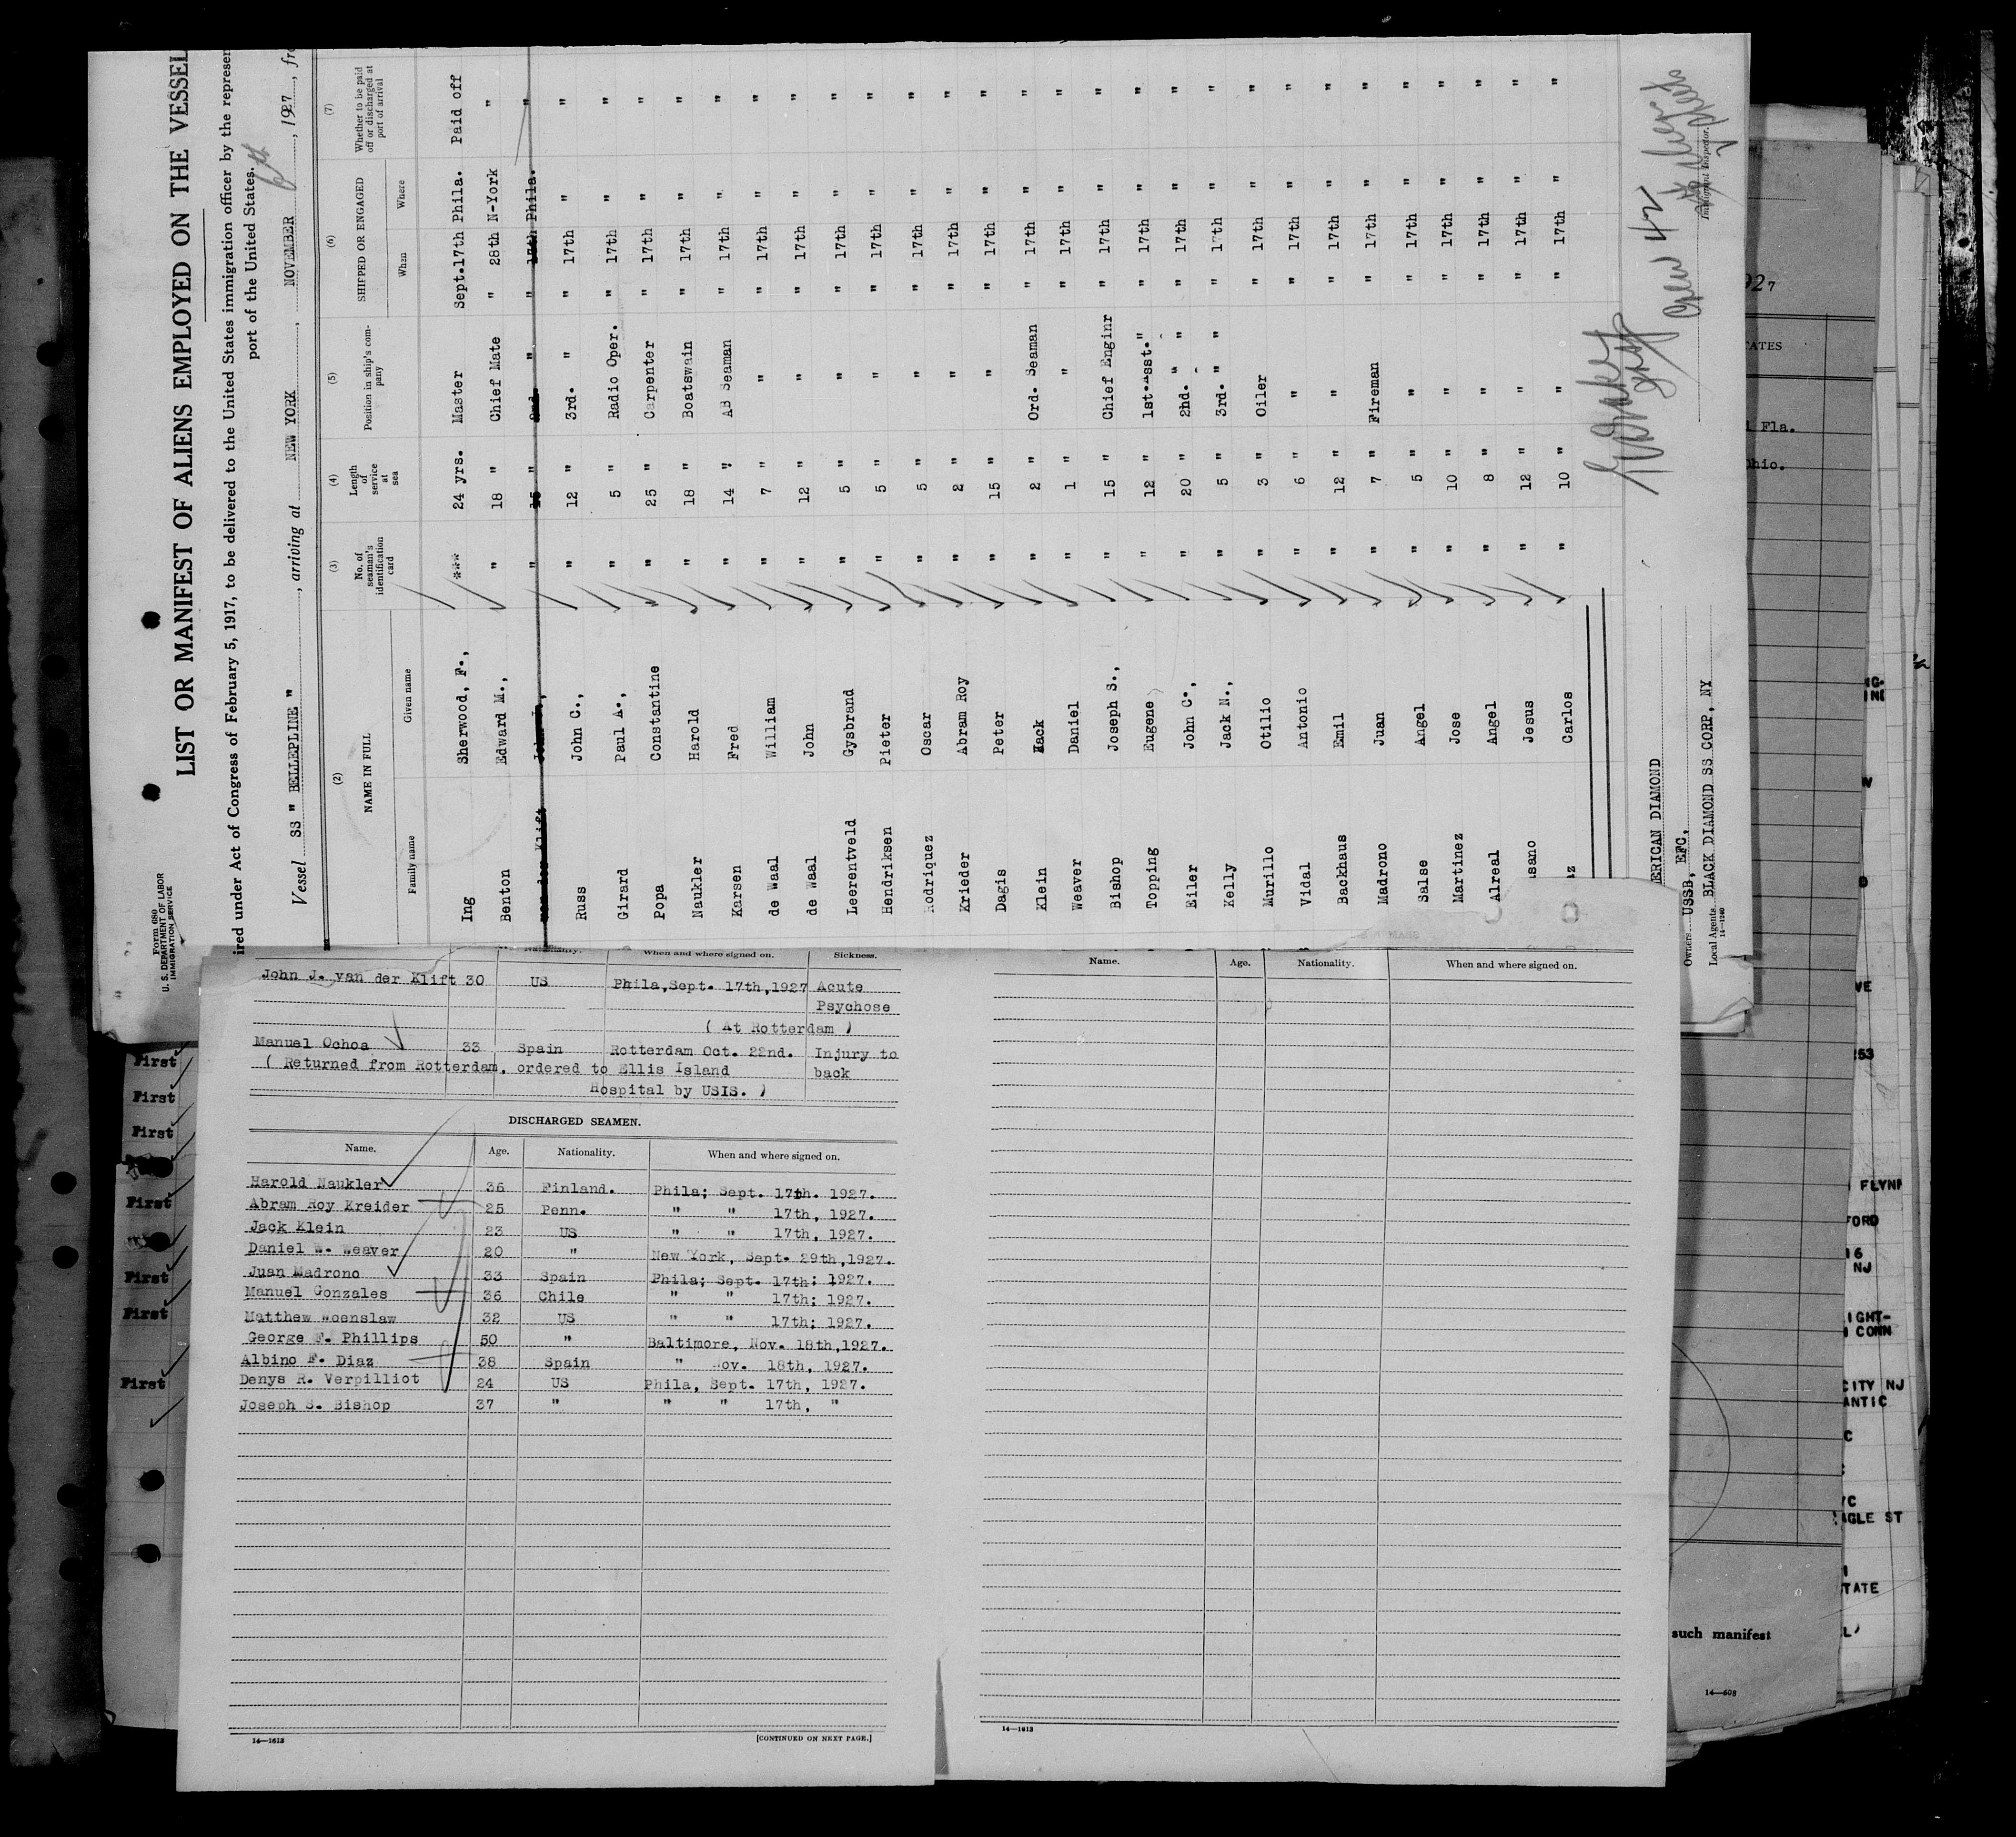 Form 680
U. S. DEPARTMENT OF LABOR
IMMIGRATION SERVICE
LIST OR MANIFEST OF ALIENS EMPLOYED ON THE VESSEL
ired under Act of Congress of February 5, 1917, to be delivered to the United States immigration officer by the represen
port of the United States.
Vessel SS " BELLEPLINE ", arriving at NEW YORK, NOVEMBER 6th, 1927, fr
(2) (3) (4) (5) (6) (7)
NAME IN FULL No. of seaman's identification card Length of service at sea Position in ship's company SHIPPED OR ENGAGED Whether to be paid off or discharged at port of arrival
Family name Given name When Where
Ing Sherwood, F., *** 24 yrs. Master Sept.17th Phila. Paid off
Benton Edward M., " 18 " Chief Mate " 28th N-York "
van der Klift John J., " 15 " 2nd. " " 17th Phila. "
Russ John C., " 12 " 3rd. " " 17th " "
Girard Paul A., " 5 " Radio Oper. " 17th " "
Popa Constantine " 25 " Carpenter " 17th " "
Naukler Harold " 18 " Boatswain " 17th " "
Karsen Fred " 14 " AB Seaman " 17th " "
de Waal William " 7 " " " 17th " "
de Waal John " 12 " " " 17th " "
Leerentveld Gysbrand " 5 " " " 17th " "
Hendriksen Pieter " 5 " " " 17th " "
Rodriquez Oscar " 5 " " " 17th " "
Krieder Abram Roy " 2 " " " 17th " "
Dagis Peter " 15 " " " 17th " "
Klein Hack " 2 " Ord. Seaman " 17th " "
Weaver Daniel " 1 " " " 17th " "
Bishop Joseph S., " 15 " Chief Enginr " 17th " "
Topping Eugene " 12 " 1st.Asst." " 17th " "
Eiler John C., " 20 " 2nd. " " " 17th " "
Kelly Jack N., " 5 " 3rd. " " " 17th " "
Murillo Otilio " 3 " Oiler " 17th " "
Vidal Antonio " 6 " " " 17th " "
Backhaus Emil " 12 " " " 17th " "
Madrono Juan " 7 " Fireman " 17th " "
Salse Angel " 5 " " " 17th " "
Martinez Jose " 10 " " " 17th " "
Alreal Angel " 8 " " " 17th " "
sano Jesus " 12 " " " 17th " "
az Carlos " 10 " " " 17th " "
Crew 42
Immigrant Inspector.
ERICAN DIAMOND
Owners USSB, EFC,
Local Agents BLACK DIAMOND SS CORP, NY
14—1240
Nationality. When and where signed on. Sickness.
John J. van der Klift 30 US Phila,Sept. 17th,1927 Acute
Psychose
( At Rotterdam )
Manuel Ochoa 33 Spain Rotterdam Oct. 22nd. Injury to
( Returned from Rotterdam, ordered to Ellis Island back
Hospital by USIS. )
DISCHARGED SEAMEN.
Name. Age. Nationality. When and where signed on.
Harold Naukler 36 Finland. Phila; Sept. 17th. 1927.
Abram Roy Kreider 25 Penn. " " 17th, 1927.
Jack Klein 23 US " " 17th, 1927.
Daniel W. Weaver 20 " New York, Sept. 29th,1927.
Juan Madrono 33 Spain Phila; Sept. 17th; 1927.
Manuel Gonzales 36 Chile " " 17th; 1927.
Matthew Woenslaw 32 US " " 17th; 1927.
George F. Phillips 50 " Baltimore, Nov. 18th,1927.
Albino F. Diaz 38 Spain " Nov. 18th, 1927.
Denys R. Verpilliot 24 US Phila, Sept. 17th, 1927.
Joseph S. Bishop 37 " " " 17th, "
14—1613 [CONTINUED ON NEXT PAGE.]
Name. Age. Nationality. When and where signed on.
14—1613
First
First
First
First
First
First
First
927
TATES
Fla.
hio.
such manifest
14—608
253
FLYNN
FORD
16
NJ
IGHT-
CONN
CITY NJ
ANTIC
YC
AGLE ST
TATE